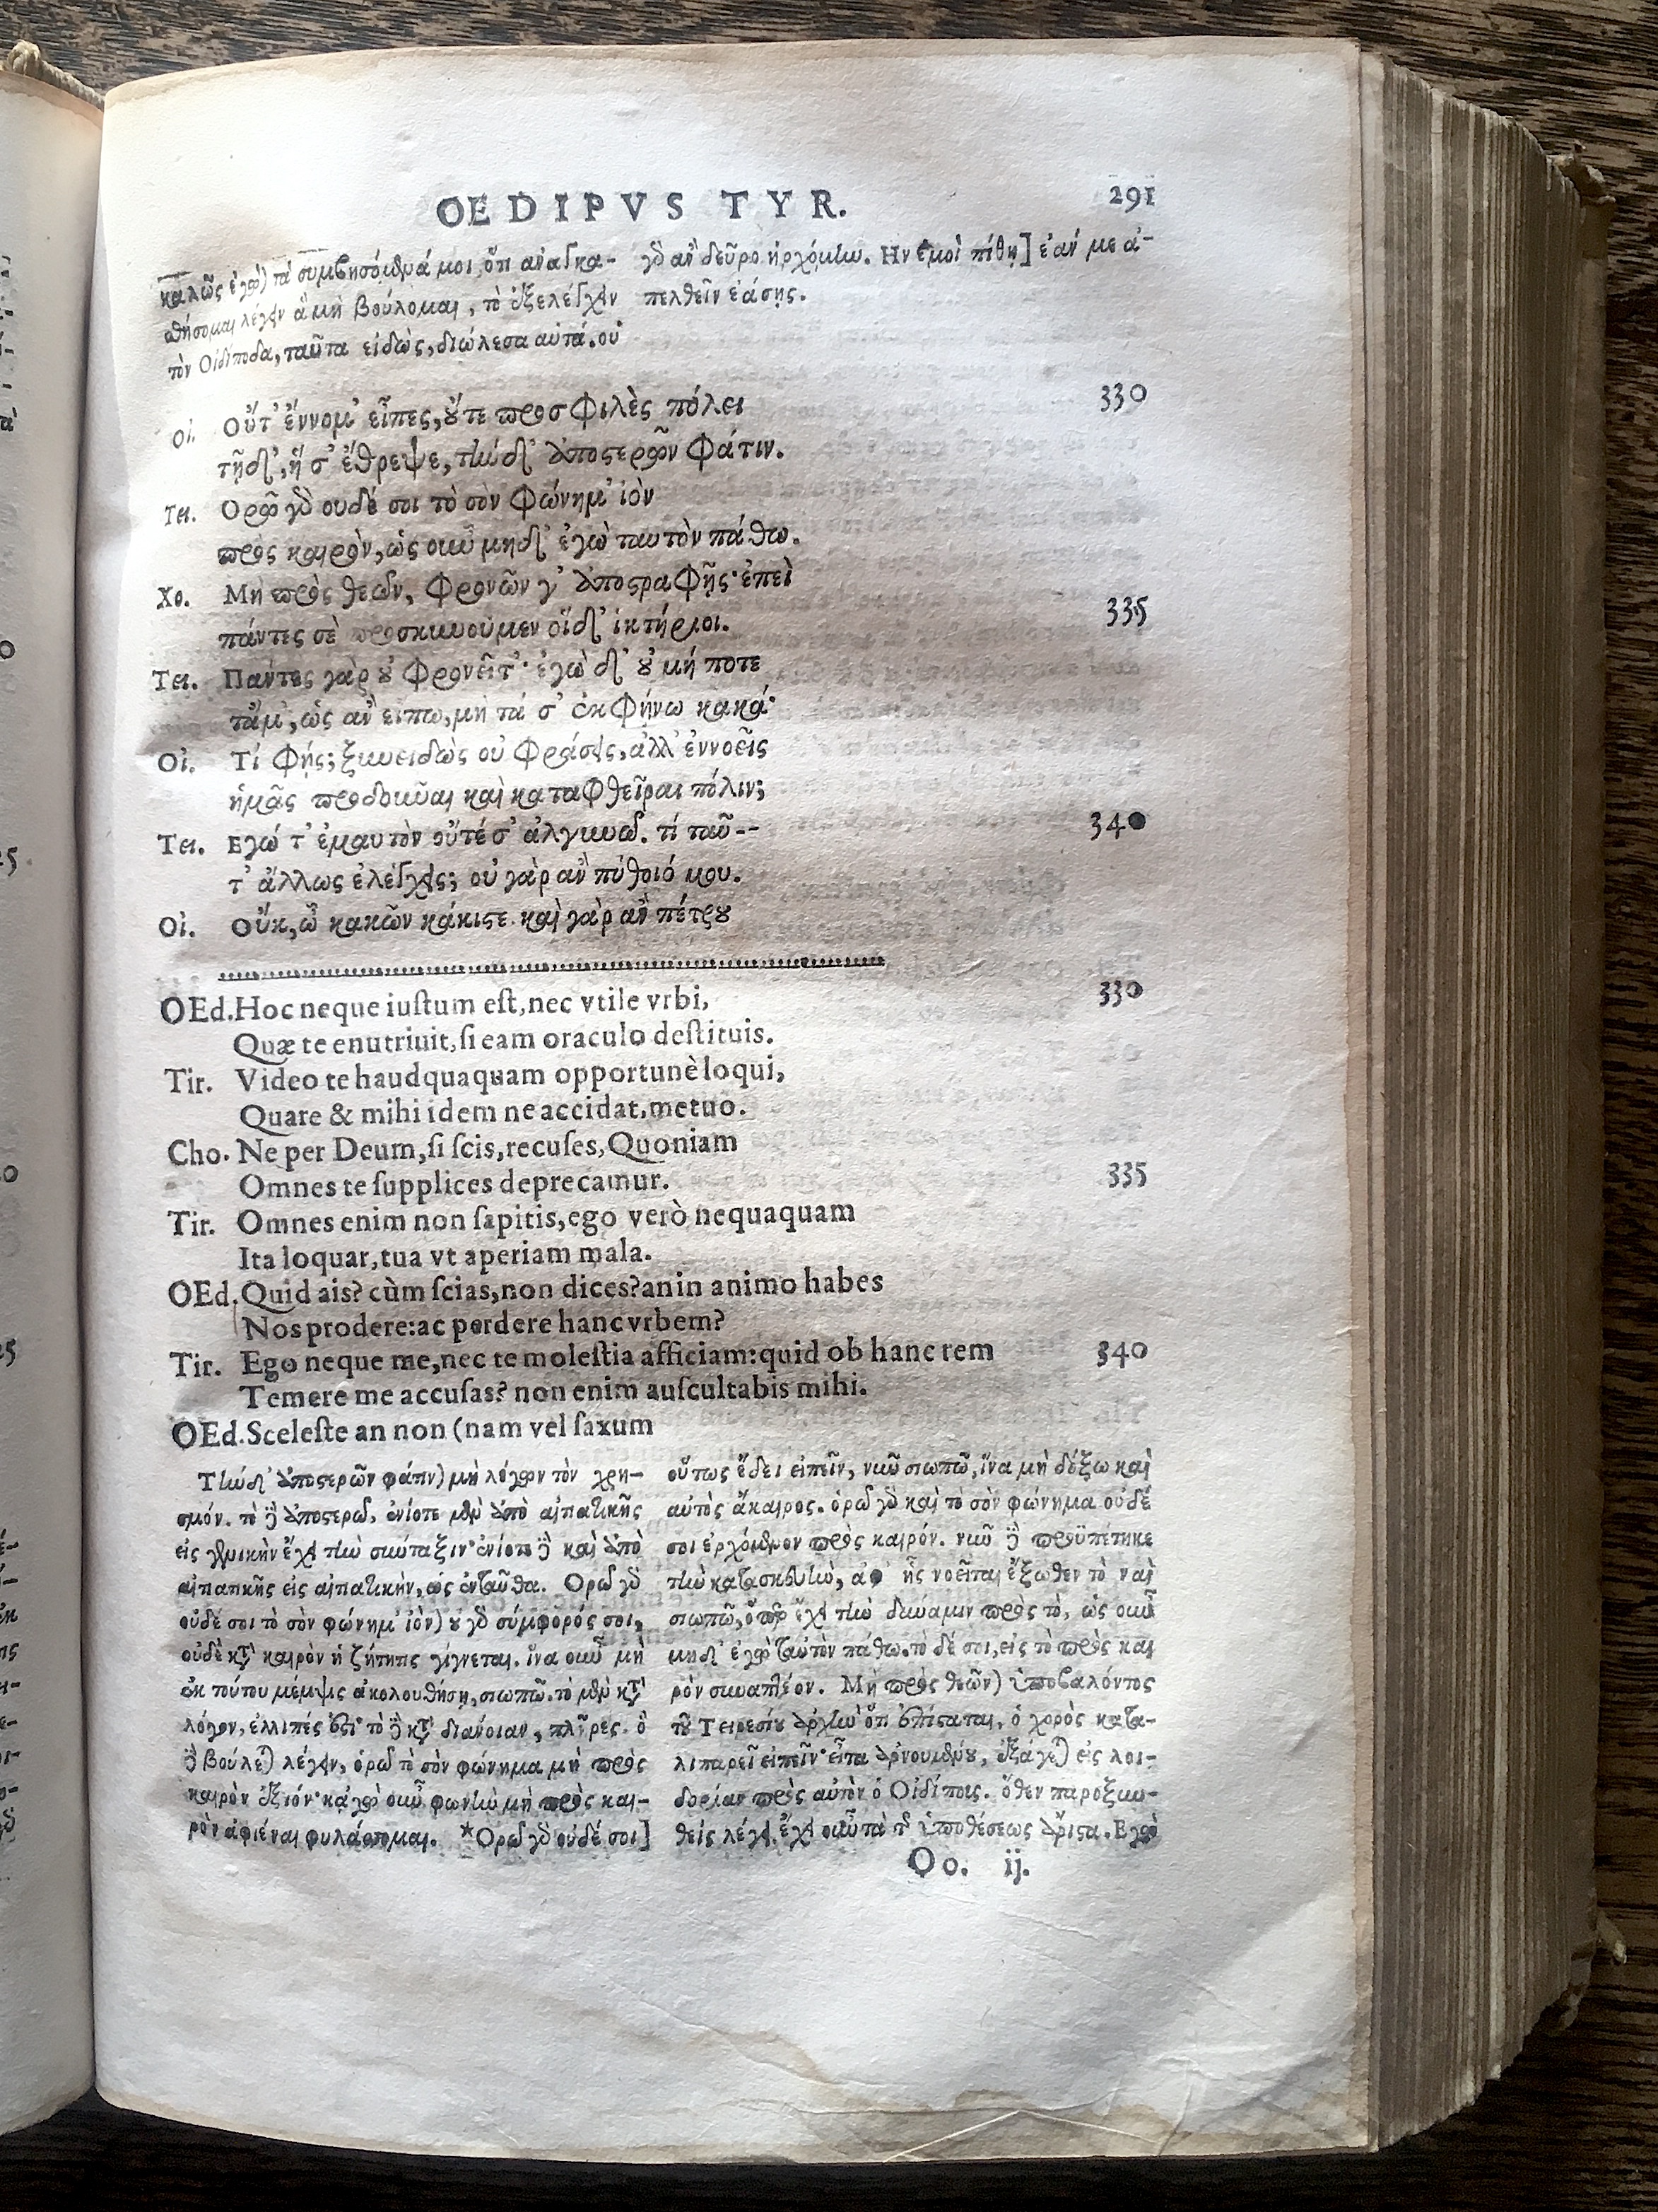 OEDIPVS TYR.
291
καλῶς ἐγὼ) τὰ συμβησόμενά μοι, ὅτι ἀναγκα-
σθήσομαι λέγειν ἃ μὴ βούλομαι, τὸ ἐξελέγχειν
τὸν Οἰδίποδα, ταῦτα εἰδὼς, διώλεσα αὐτά. οὐ
γὰρ ἂν δεῦρο ἠρχόμην. Ην ἐμοὶ πίθῃ] ἐάν με ἀ-
πελθεῖν ἐάσῃς.
Οἰ. Οὔτ' ἔννομ' εἶπες, οὔτε προσφιλὲς πόλει 330
τῇδ', ἥ σ' ἔθρεψε, τήνδ' ἀποστερῶν φάτιν.
Τει. Ορῶ γὰρ οὐδέ σοι τὸ σὸν φώνημ' ἰὸν
πρὸς καιρὸν, ὡς οὖν μηδ' ἐγὼ ταυτὸν πάθω.
Χο. Μὴ πρὸς θεῶν, φρονῶν γ' ἀποστραφῇς· ἐπεὶ
πάντες σὲ προσκυνοῦμεν οἵδ' ἱκτήριοι. 335
Τει. Πάντες γὰρ οὐ φρονεῖτ'· ἐγὼ δ' οὐ μή ποτε
τἄμ', ὡς ἂν εἴπω, μὴ τὰ σ' ἐκφήνω κακά·
Οἰ. Τί φής; ξυνειδὼς οὐ φράσεις, ἀλλ' ἐννοεῖς
ἡμᾶς προδοῦναι καὶ καταφθεῖραι πόλιν;
Τει. Εγώ τ' ἐμαυτὸν οὔτέ σ' ἀλγυνῶ. τί ταῦ-- 340
τ' ἄλλως ἐλέγχεις; οὐ γὰρ ἂν πύθοιό μου.
Οἰ. Οὔκ, ὦ κακῶν κάκιστε. καὶ γὰρ ἂν πέτρου
OEd. Hoc neque iustum est, nec vtile vrbi, 330
Quæ te enutriuit, si eam oraculo destituis.
Tir. Video te haudquaquam opportunè loqui,
Quare & mihi idem ne accidat, metuo.
Cho. Ne per Deum, si scis, recuses, Quoniam
Omnes te supplices deprecamur. 335
Tir. Omnes enim non sapitis, ego verò nequaquam
Ita loquar, tua vt aperiam mala.
OEd. Quid ais? cùm scias, non dices? an in animo habes
Nos prodere: ac perdere hanc vrbem?
Tir. Ego neque me, nec te molestia afficiam: quid ob hanc rem 340
Temere me accusas? non enim auscultabis mihi.
OEd. Sceleste an non (nam vel saxum
Τήνδ' ἀποστερῶν φάτιν) μὴ λέγων τὸν χρη-
σμόν. τὸ δὲ ἀποστερῶ, ἐνίοτε μὲν ἀπὸ αἰτιατικῆς
εἰς γενικὴν ἔχει τὴν σύνταξιν· ἐνίοτε δὲ καὶ ἀπὸ
αἰτιατικῆς εἰς αἰτιατικήν, ὡς ἐνταῦθα. Ορῶ γὰρ
οὐδέ σοι τὸ σὸν φώνημ' ἰὸν) οὐ γὰρ σύμφορός σοι,
οὐδὲ κατὰ καιρὸν ἡ ζήτησις γίγνεται. ἵνα οὖν μὴ
ἐκ τούτου μέμψις ἀκολουθήσῃ, σιωπῶ. τὸ μὲν κατὰ
λόγον, ἐλλιπές ἐστι· τὸ δὲ κατὰ διάνοιαν, πλῆρες. ὃ
δὲ βούλεται λέγειν, ὁρῶ τὸ σὸν φώνημα μὴ πρὸς
καιρὸν ἐξιόν· κἀγὼ οὖν φωνὴν μὴ πρὸς και-
ρὸν ἀφιέναι φυλάττομαι. *Ορῶ γὰρ οὐδέ σοι]
οὕτως ἔδει εἰπεῖν, νῦν σιωπῶ, ἵνα μὴ δόξω καὶ
αὐτὸς ἄκαιρος. ὁρῶ γὰρ καὶ τὸ σὸν φώνημα οὐδέ
σοι ἐρχόμενον πρὸς καιρόν. νῦν δὲ προϋπέτηκε
τὴν κατασκευὴν, ἀφ' ἧς νοεῖται ἔξωθεν τὸ ναὶ
σιωπῶ, ὅπερ ἔχει τὴν δύναμιν πρὸς τὸ, ὡς οὖν
μηδ' ἐγὼ ταὐτὸν πάθω. τὸ δέ σοι, εἰς τὸ πρὸς και
ρὸν συναπτέον. Μὴ πρὸς θεῶν) ὑποβαλόντος
τοῦ Τειρεσίου ἀρχὴν ὅτι ἐπίσταται, ὁ χορὸς κατα-
λιπαρεῖ εἰπεῖν· εἶτα ἀρνουμένου, ἐξάγεται εἰς λοι-
δορίαν πρὸς αὐτὸν ὁ Οἰδίπους. ὅθεν παροξυν-
θεὶς λέγει. ἔχει οὖν τὰ τῆς ὑποθέσεως ἄριστα. Εγὼ
Oo. ij.